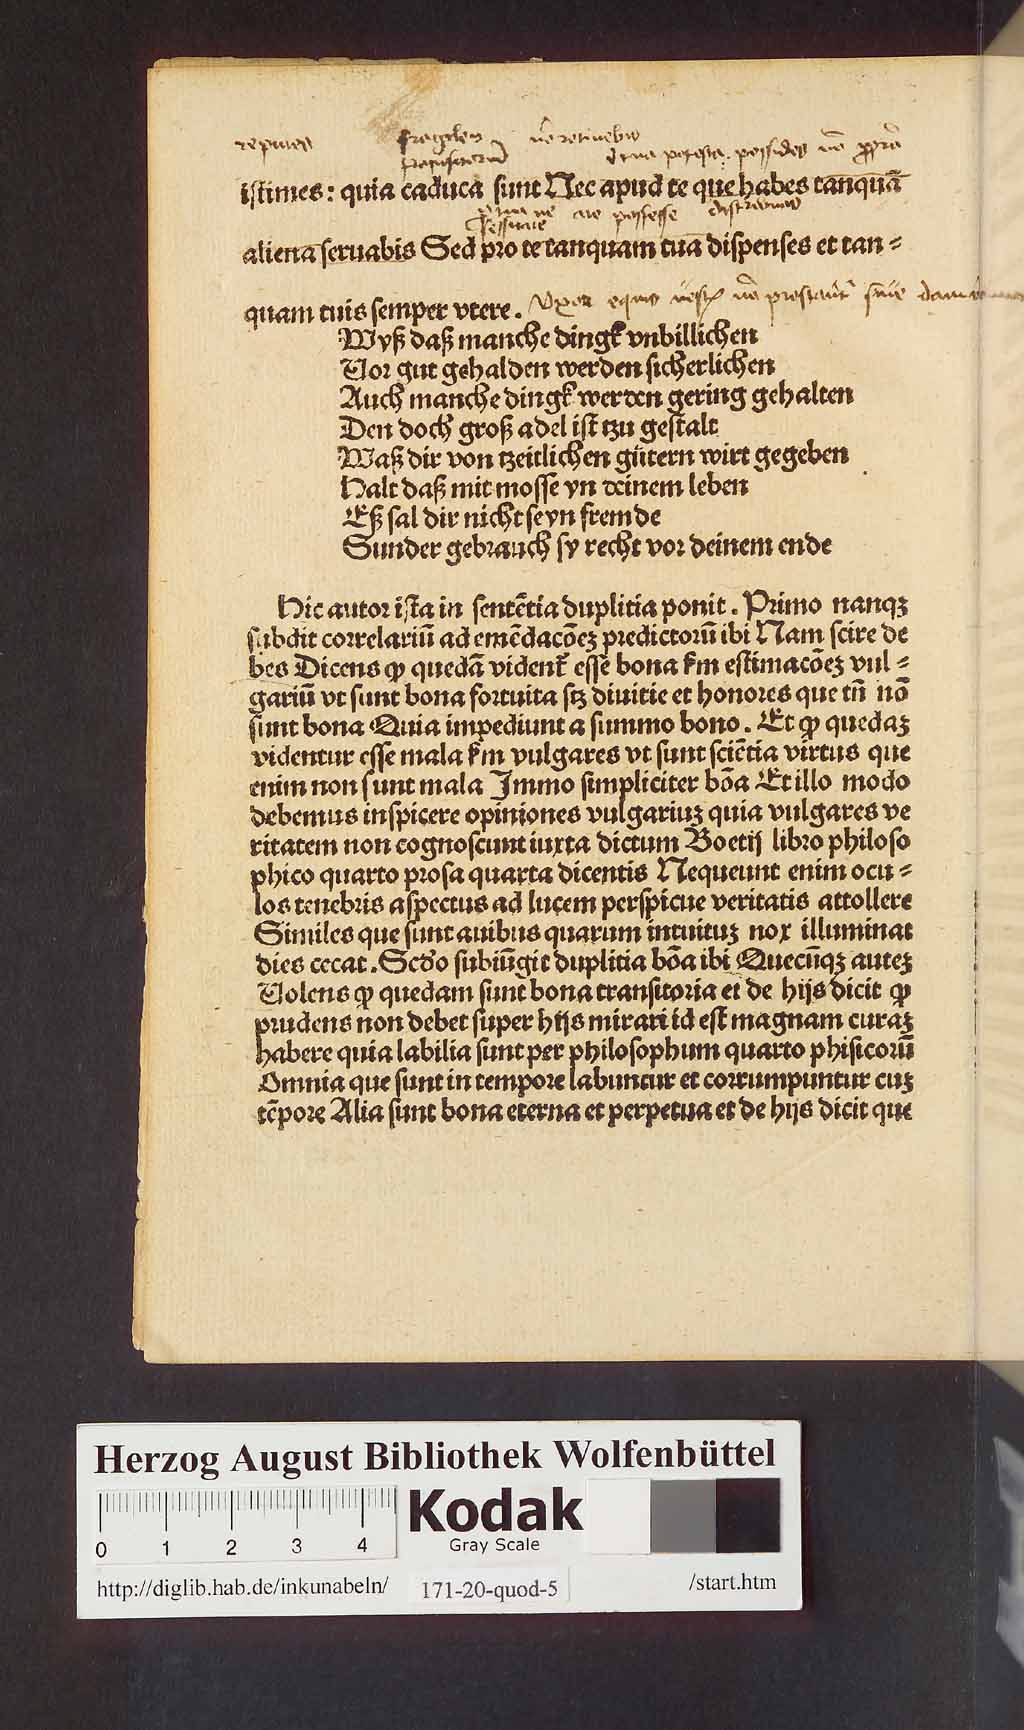 reputes fragilem
transitoriū
istimes: quia caduca sunt Nec apud te que habes tanquā
aliena seruabis Sed pro te tanquam tua dispenses et tan⸗
quam tuis semper vtere.
Wyß daß manche dingk vnbillichen
Vor gut gehalden werden sicherlichen
Auch manche dingk werden gering gehalten
Den doch groß adel ist tzu gestalt
Waß dir von tzeitlichen gütern wirt gegeben
Halt daß mit mosse yn deinem leben
Eß sal dir nicht seyn fremde
Sunder gebrauch sy recht vor deinem ende
Hic autor ista in sentētia duplitia ponit. Primo nanqꝫ
subdit correlariū ad emēdacōeꝫ predictorū ibi Nam scire de
bes Dicens ꝙ quedā vident᷑ esse bona km̄ estimacōeꝫ vul⸗
gariū vt sunt bona fortuita sꝫ diuitie et honores que tn̄ nō
sunt bona Quia impediunt a summo bono. Et ꝙ quedaꝫ
videntur esse mala km̄ vulgares vt sunt sciētia virtus que
enim non sunt mala Immo simpliciter bōa Et illo modo
debemus inspicere opiniones vulgariuꝫ quia vulgares ve
ritatem non cognoscunt iuxta dictum Boetij libro philoso
phico quarto prosa quarta dicentis Nequeunt enim ocu⸗
los tenebris aspectus ad lucem perspicue veritatis attollere
Similes que sunt auibus quarum intuituꝫ nox illuminat
dies cecat. Scdo subiūgit duplitia bōa ibi Quecūqꝫ auteꝫ
Volens ꝙ quedam sunt bona transitoria et de hijs dicit ꝙ
prudens non debet super hijs mirari id est magnam curaꝫ
habere quia labilia sunt per philosophum quarto phisicorū
Omnia que sunt in tempore labuntur et corrumpuntur cuꝫ
tēpore Alia sunt bona eterna et perpetua et de hijs dicit que
Herzog August Bibliothek Wolfenbüttel
0 1 2 3 4
Kodak
Gray Scale
http://diglib.hab.de/inkunabeln/ 171-20-quod-5 /start.htm